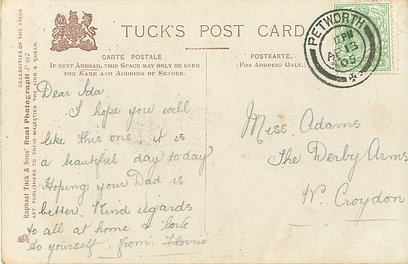 TUCK'S POST CARD
CARTE POSTALE
IF SENT ABROAD, THIS SPACE MAY ONLY BE USED
FOR NAME AND ADDRESS OF SENDER.
POSTKARTE.
(FOR ADDRESS ONLY.)
PETWORTH
12 PM
13
05
CELEBRITIES OF THE STAGE
Raphael Tuck & Sons' Real Photograph
ART PUBLISHERS TO THEIR MAJESTIES THE KING & QUEEN
Dear Ida
I hope you will
like this one it is
a beautiful day today
Hoping your Dad is
better. Kind regards
to all at home & love
to yourself. from
Miss. Adams
The Derby Arms
W. Croydon